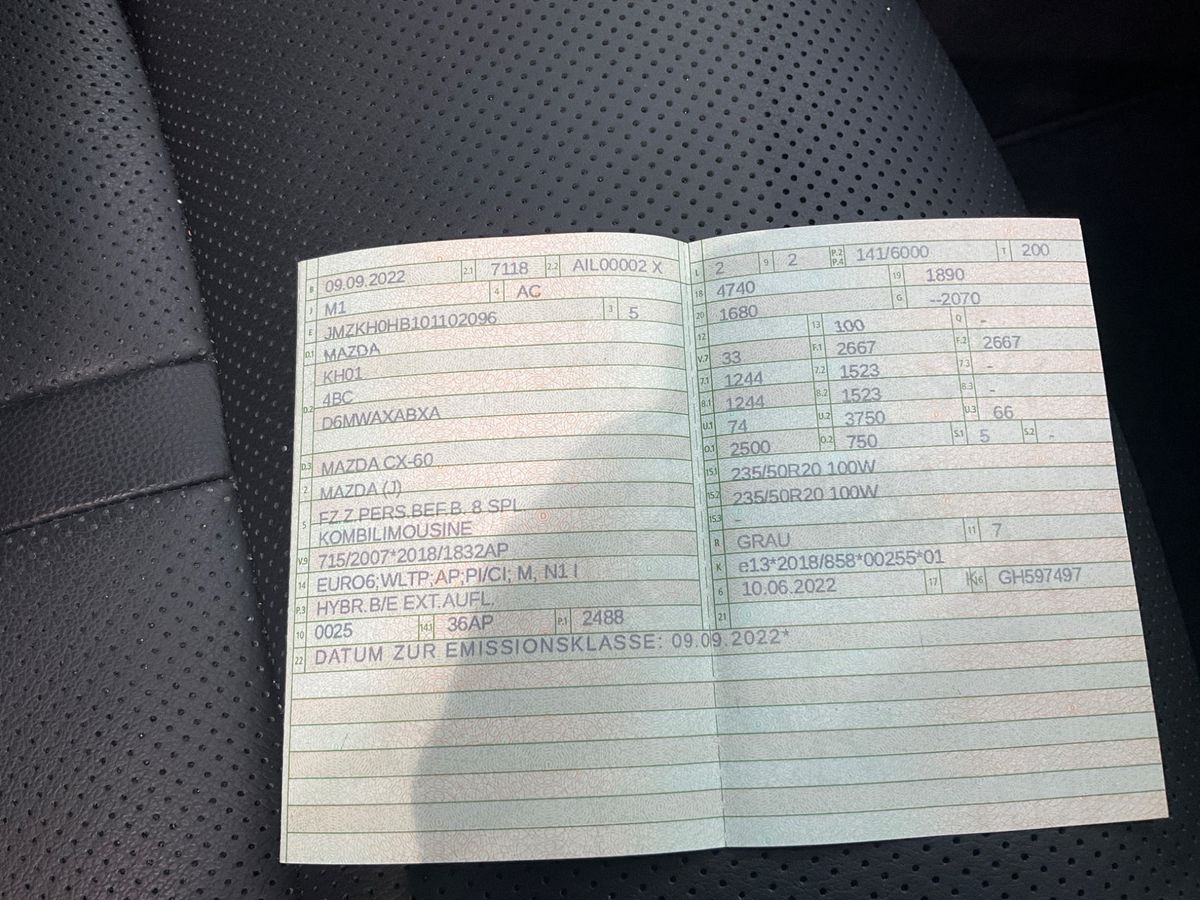 B 09.09.2022 2.1 7118 2.2 AIL00002 X
J M1 4 AC
E JMZKH0HB101102096 3 5
D.1 MAZDA
KH01
D.2 4BC
D6MWAXABXA
D.3 MAZDA CX-60
2 MAZDA (J)
5 FZ.Z.PERS.BEF.B. 8 SPL.
KOMBILIMOUSINE
V.9 715/2007*2018/1832AP
14 EURO6;WLTP;AP;PI/CI; M, N1 I
P.3 HYBR.B/E EXT.AUFL.
10 0025 14.1 36AP P.1 2488
22 DATUM ZUR EMISSIONSKLASSE: 09.09.2022*
L 2 9 2 P.2 P.4 141/6000 T 200
18 4740 19 1890
20 1680 G --2070
12 13 100 Q -
V.7 33 F.1 2667 F.2 2667
7.1 1244 7.2 1523 7.3 -
8.1 1244 8.2 1523 8.3 -
U.1 74 U.2 3750 U.3 66
O.1 2500 O.2 750 S.1 5 S.2 -
15.1 235/50R20 100W
15.2 235/50R20 100W
15.3 -
R GRAU 11 7
K e13*2018/858*00255*01
6 10.06.2022 17 K 16 GH597497
21